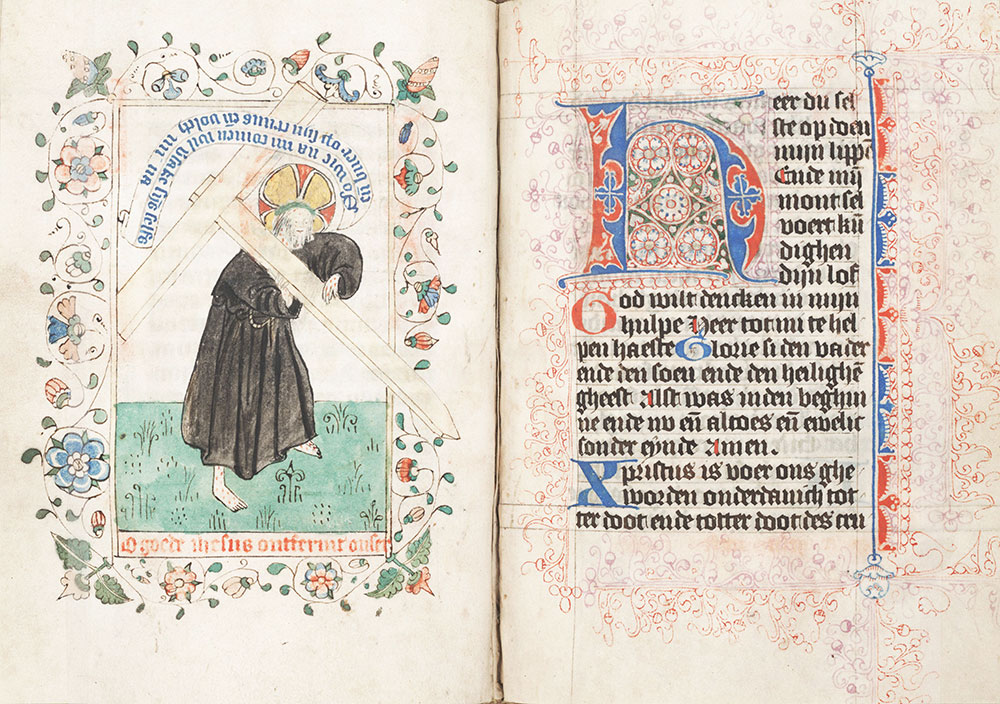 So wie na mi comen wil sake selfs
eñ op sijn cruce eñ volch mi na
O goede ihesus ontfermt onser
Heer du sel
ste op doen
mijn lippē
Ende mij
mont sel
voert kū
dighen
dijn lof
God wilt dencken in mijn
hulpe Heer tot mi te hel
pen haeste Glorie si den vader
ende den soen ende den heilighē
gheest Alst was inden beghin
ne ende nv eñ altoes eñ ewelic
sonder eynde Amen.
Xpristus is voer ons ghe
worden onderdanich tot
ter doot ende totter doot des cru